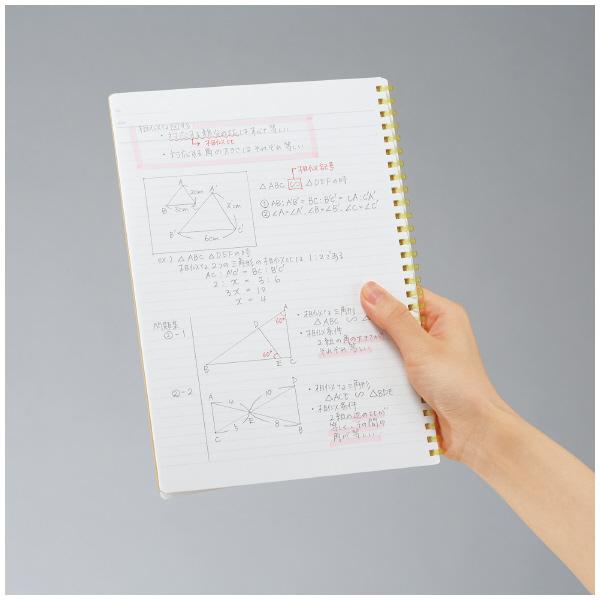 相似な図形
・対応する線分の比はすべて等しい
→相似比
・対応する角の大きさはそれぞれ等しい
相似記号
△ABC ∽ △DEFの時
① AB:A'B' = BC:B'C' = CA:C'A'
② ∠A=∠A', ∠B=∠B', ∠C=∠C'
A
2cm
B
3cm
C
A'
xcm
B'
6cm
C'
ex) △ABC △DEFの時
相似な2つの三角形の相似比は1:2である
AC:A'C' = BC:B'C'
2:x = 3:6
3x = 12
x = 4
問題集
②-1
A
60°
D
60°
B
E
C
・相似な三角形
△ABC ∽ △
・相似条件
2組の角の大きさが
それぞれ等しい
②-2
A
4
10
D
E
C
5
8
B
・相似な三角形
△ACE ∽ △BDE
・相似条件
2組の辺の比が
等しく、その間の
角が等しい